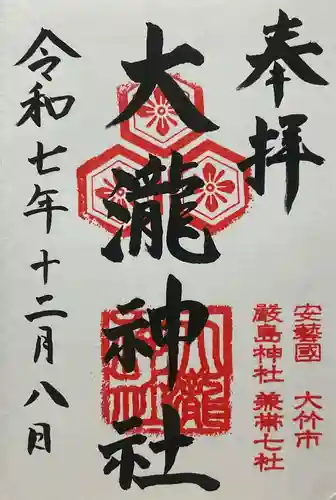 奉拝
安藝國 大竹市
嚴島神社兼帯七社
大瀧神社
大瀧神社
令和七年十二月八日